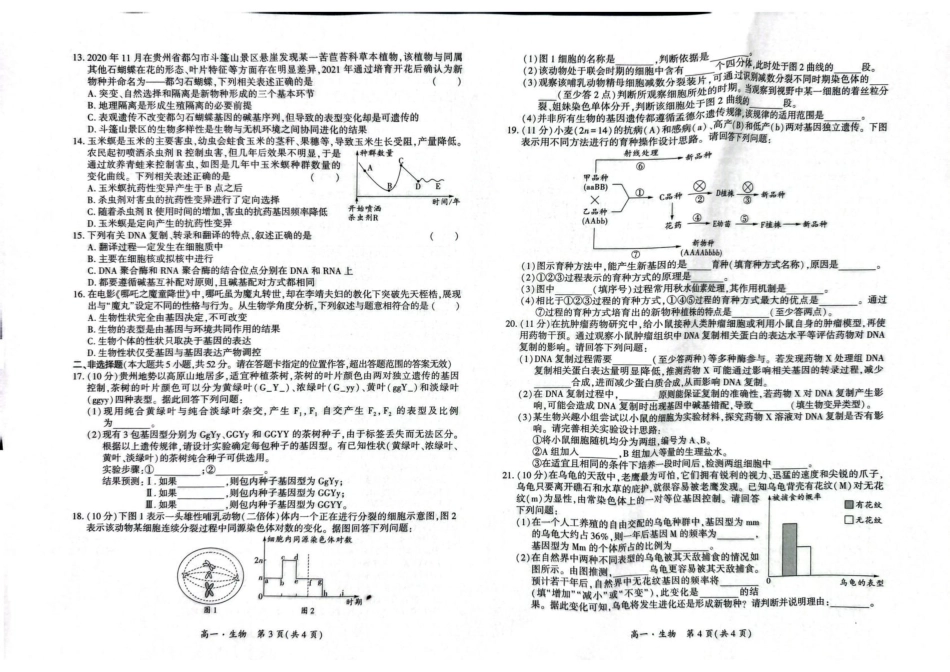 13. 2020 年 11 月在贵州省都匀市斗篷山景区悬崖发现某一苦苣苔科草本植物,该植物与同属
其他石蝴蝶在花的形态、叶片特征等方面存在明显差异,2021 年通过培育开花后确认为新
物种并命名为——都匀石蝴蝶,下列相关表述正确的是 ( )
A. 突变、自然选择和隔离是新物种形成的三个基本环节
B. 地理隔离是形成生殖隔离的必要前提
C. 表观遗传不改变都匀石蝴蝶基因的碱基序列,但导致的表型变化却是可遗传的
D. 斗篷山景区的生物多样性是生物与无机环境之间协同进化的结果
14. 玉米螟是玉米的主要害虫,幼虫会蛀食玉米的茎秆、果穗等,导致玉米生长受阻,产量降低。
农民起初喷洒杀虫剂 R 控制虫害,但几年后效果不明显,于是
通过放养青蛙来控制害虫,如图是几年中玉米螟种群数量的
变化曲线。下列相关表述正确的是 ( )
A. 玉米螟抗药性变异产生于 B 点之后
B. 杀虫剂对害虫的抗药性变异进行了定向选择
C. 随着杀虫剂 R 使用时间的增加,害虫的抗药基因频率降低
D. 玉米螟是定向产生的抗药性变异
种群数量
A
B
C
D
E
时间/年
开始喷洒
杀虫剂R
15. 下列有关 DNA 复制、转录和翻译的特点,叙述正确的是 ( )
A. 翻译过程一定发生在细胞质中
B. 主要在细胞核或拟核中进行
C. DNA 聚合酶和 RNA 聚合酶的结合位点分别在 DNA 和 RNA 上
D. 都要遵循碱基互补配对原则,且碱基配对方式都相同
16. 在电影《哪吒之魔童降世》中,哪吒虽为魔丸转世,却在李靖夫妇的教化下突破先天桎梏,展现
出与“魔丸”设定不同的性格与行为。从生物学角度分析,下列叙述与题意相符合的是 ( )
A. 生物性状完全由基因决定,不可改变
B. 生物的表型是由基因与环境共同作用的结果
C. 生物个体的性状只取决于基因的表达
D. 生物性状仅受基因与基因表达产物调控
二、非选择题(本大题共 5 小题,共 52 分。请在答题卡指定的位置作答,超出答题范围的答案无效)
17. (10 分)贵州地势以高原山地居多,适宜种植茶树,茶树的叶片颜色由两对独立遗传的基因
控制,茶树的叶片颜色可以分为黄绿叶(G_Y_)、浓绿叶(G_yy)、黄叶(ggY_)和淡绿叶
(ggyy)四种表型。据此回答下列问题:
(1)现用纯合黄绿叶与纯合淡绿叶杂交,产生 F₁,F₁ 自交产生 F₂,F₂ 的表型及比例
为______。
(2)现有 3 包基因型分别为 GgYy、GGYy 和 GGYY 的茶树种子,由于标签丢失而无法区分。
根据以上遗传规律,请设计实验确定每包种子的基因型。有已知性状(黄绿叶、浓绿叶、
黄叶、淡绿叶)的茶树纯合种子可供选用。
实验步骤:①______;②______。
结果预测:Ⅰ. 如果______,则包内种子基因型为 GgYy;
Ⅱ. 如果______,则包内种子基因型为 GGYy;
Ⅲ. 如果______,则包内种子基因型为 GGYY。
18. (10 分)下图 1 表示一头雄性哺乳动物(二倍体)体内一个正在进行分裂的细胞示意图,图 2
表示该动物某细胞连续分裂过程中同源染色体对数的变化。据图回答下列问题:
图1
细胞内同源染色体对数
2n
n
0
a
b
c
d
e
f
g
h
时期
图2
高一·生物 第 3 页(共 4 页)
(1)图 1 细胞的名称是______,判断依据是______。
(2)该动物处于联会时期的细胞中含有______个四分体,此时处于图 2 曲线的______段。
(3)观察该哺乳动物精母细胞减数分裂装片,可通过识别减数分裂不同时期染色体的
______(至少答 2 点)判断所观察细胞所处的时期。当观察到视野中某一细胞的着丝粒分
裂、姐妹染色单体分开,判断该细胞处于图 2 曲线的______段。
(4)并非所有生物的基因遗传都遵循孟德尔遗传规律,该规律的适用范围是______。
19. (11 分)小麦(2n=14)的抗病(A)和感病(a)、高产(B)和低产(b)两对基因独立遗传。下图
表示用不同方法进行的育种操作设计思路。请回答下列问题:
射线处理
⑥
新品种
甲品种
(aaBB)
×
乙品种
(AAbb)
①
C品种
⊗
②
D植株
⊗
③
新品种
花药
④
E幼苗
⑤
F植株
新品种
⑦
新物种
(AAAAbbbb)
(1)图示育种方法中,能产生新基因的是______育种(填育种方式名称),原因是______。
(2)①②③过程表示的育种方式的原理是______。
(3)图中______(填序号)过程常用秋水仙素处理,其作用机制是______。
(4)相比于①②③过程的育种方式,①④⑤过程的育种方式最大的优点是______。通过
⑦过程的育种方式培育出的新物种植株的特点是______(至少答两点)。
20. (11 分)在抗肿瘤药物研究中,给小鼠接种人类肿瘤细胞或利用小鼠自身的肿瘤模型,再使
用药物干预。通过观察小鼠肿瘤组织中 DNA 复制相关蛋白的表达水平等评估药物对 DNA
复制的影响。请回答下列问题:
(1)DNA 复制过程需要______(至少答两种)等多种酶参与。若发现药物 X 处理组 DNA
复制相关蛋白表达量明显降低,推测药物 X 可能通过影响相关基因的转录过程,减少
______合成,进而减少蛋白质合成,从而影响 DNA 复制。
(2)在 DNA 复制过程中,______原则能保证复制的准确性,若药物 X 对 DNA 复制产生影
响,可能会造成 DNA 复制时出现基因中碱基错配,导致______(填生物变异类型)。
(3)某生物兴趣小组尝试以小鼠的细胞为实验材料,探究药物 X 溶液对 DNA 复制是否有影
响。请完善相关实验设计思路:
①将小鼠细胞随机均分为两组,编号为 A、B。
②A 组加入______,B 组加入等量的生理盐水。
③在适宜且相同的条件下培养一段时间后,检测两组细胞中______。
21. (10 分)在乌龟的天敌中,老鹰最为可怕,它们拥有锐利的视力、迅猛的速度和尖锐的爪子,
乌龟只要离开礁石和水草的庇护,就很容易被老鹰发现。已知乌龟背壳有花纹(M)对无花
纹(m)为显性,由常染色体上的一对等位基因控制。请回答
下列问题:
(1)在一个人工养殖的自由交配的乌龟种群中,基因型为 mm
的乌龟大约占 36%,则一年后基因 M 的频率为______,
基因型为 Mm 的个体所占的比例为______。
(2)在自然界中两种不同表型的乌龟被其天敌捕食的情况如
图所示。由图推测,______乌龟更容易被其天敌捕食。
预计若干年后,自然界中无花纹基因的频率将______
(填“增加”“减小”或“不变”),此变化是______的结
果。据此变化可知,乌龟将发生进化还是形成新物种?请判断并说明理由:______。
被捕食的概率
有花纹
无花纹
0
乌龟的表型
高一·生物 第 4 页(共 4 页)